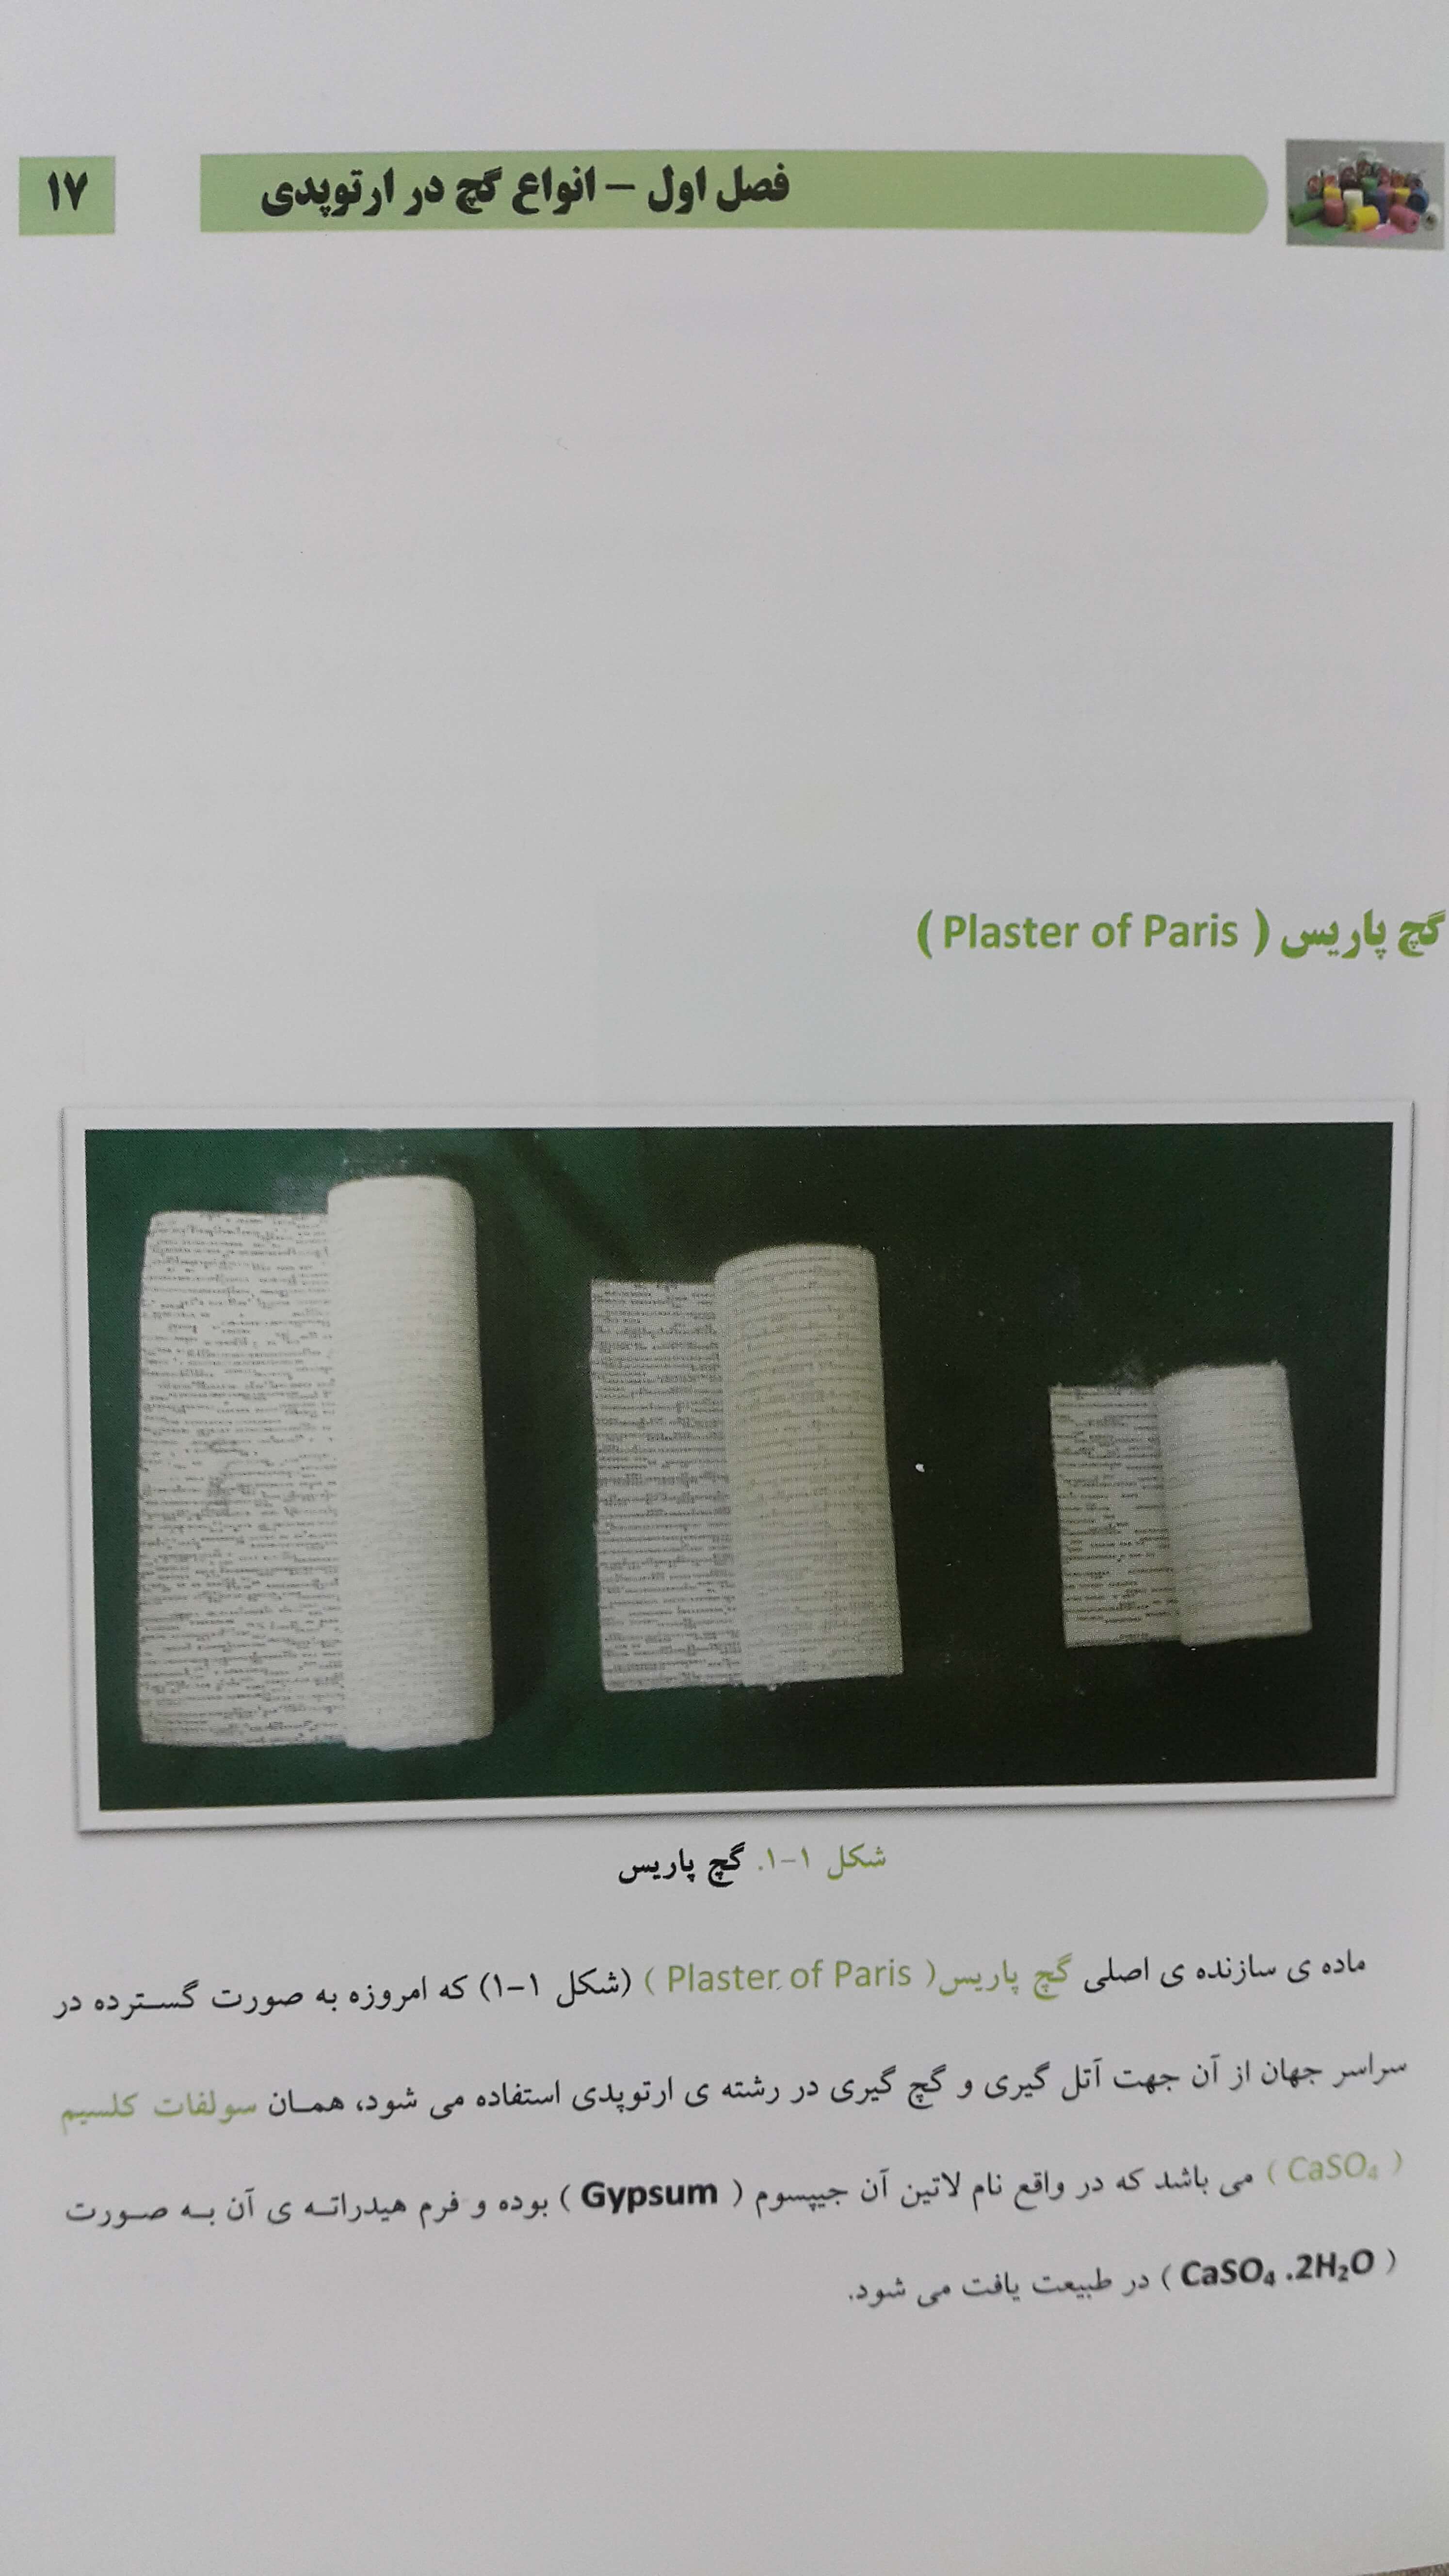 فصل اول – انواع گچ در ارتوپدی
۱۷
گچ پاریس ( Plaster of Paris )
شکل ۱-۱. گچ پاریس
ماده ی سازنده ی اصلی گچ پاریس( Plaster of Paris ) (شکل ۱-۱) که امروزه به صورت گسترده در
سراسر جهان از آن جهت آتل گیری و گچ گیری در رشته ی ارتوپدی استفاده می شود، همان سولفات کلسیم
( CaSO₄ ) می باشد که در واقع نام لاتین آن جیپسوم ( Gypsum ) بوده و فرم هیدراته ی آن به صورت
( CaSO₄ .2H₂O ) در طبیعت یافت می شود.